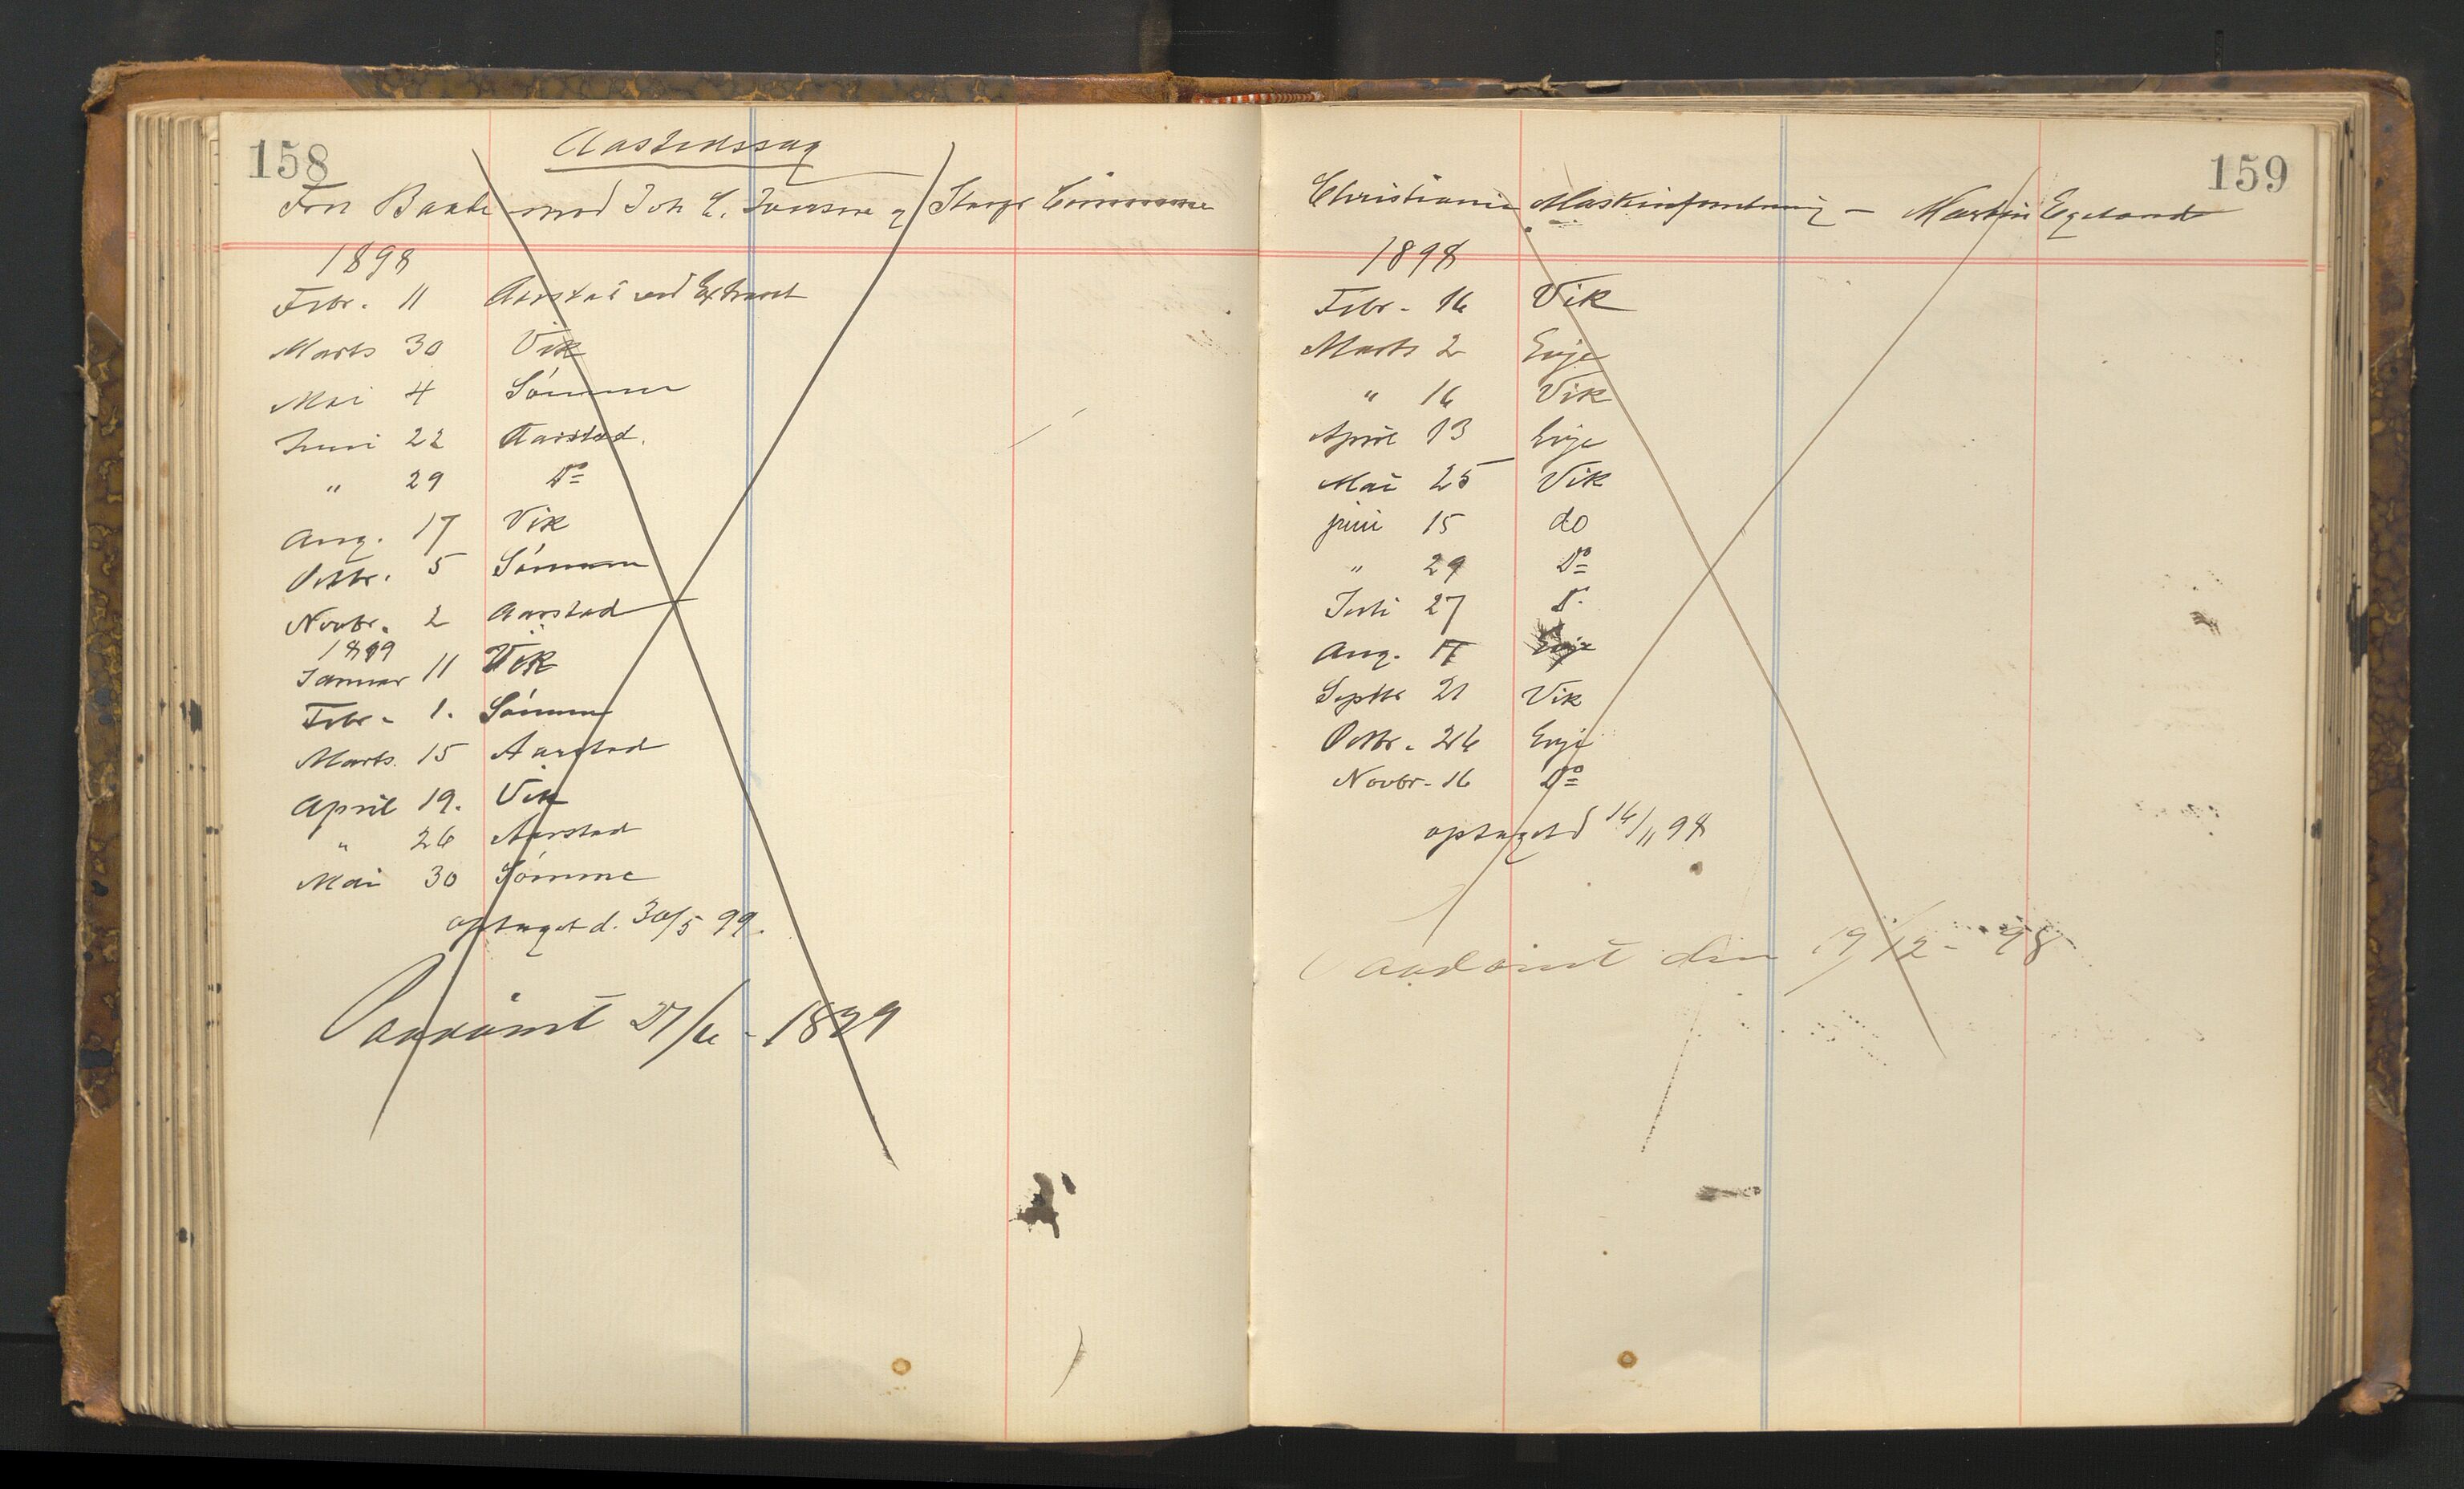 158
Aastedssag
Fru Baabe mod Joh C. Ivarson og Stangs Commune
1898
Febr. 11 Aarstad ved Extraret
Marts 30 Vik
Mai 4 Sömme
Juni 22 Aarstad.
" 29 Do
Aug. 17 Vik
Octbr. 5 Sömme
Novbr. 2 Aarstad
1899
Januar 11 Vik
Febr. 1. Sömme
Marts. 15 Aarstad
April 19. Vik
" 26 Aarstad
Mai 30 Sömme
optaget d. 30/5 99.
Paadömt 27/6 - 1899
159
Christiania Maskinforretning - Martin Egeland
1898
Febr. 16 Vik
Marts 2 Evje
" 16 Vik
April 13 Evje
Mai 25 Vik
juni 15 do
" 29 Do
Juli 27 D.
Aug. 17 Evje
Septbr 21 Vik
Octbr. 26 Evje
Novbr. 16 Do
optaget d 16/11 98
Paadömt den 19/12 - 98